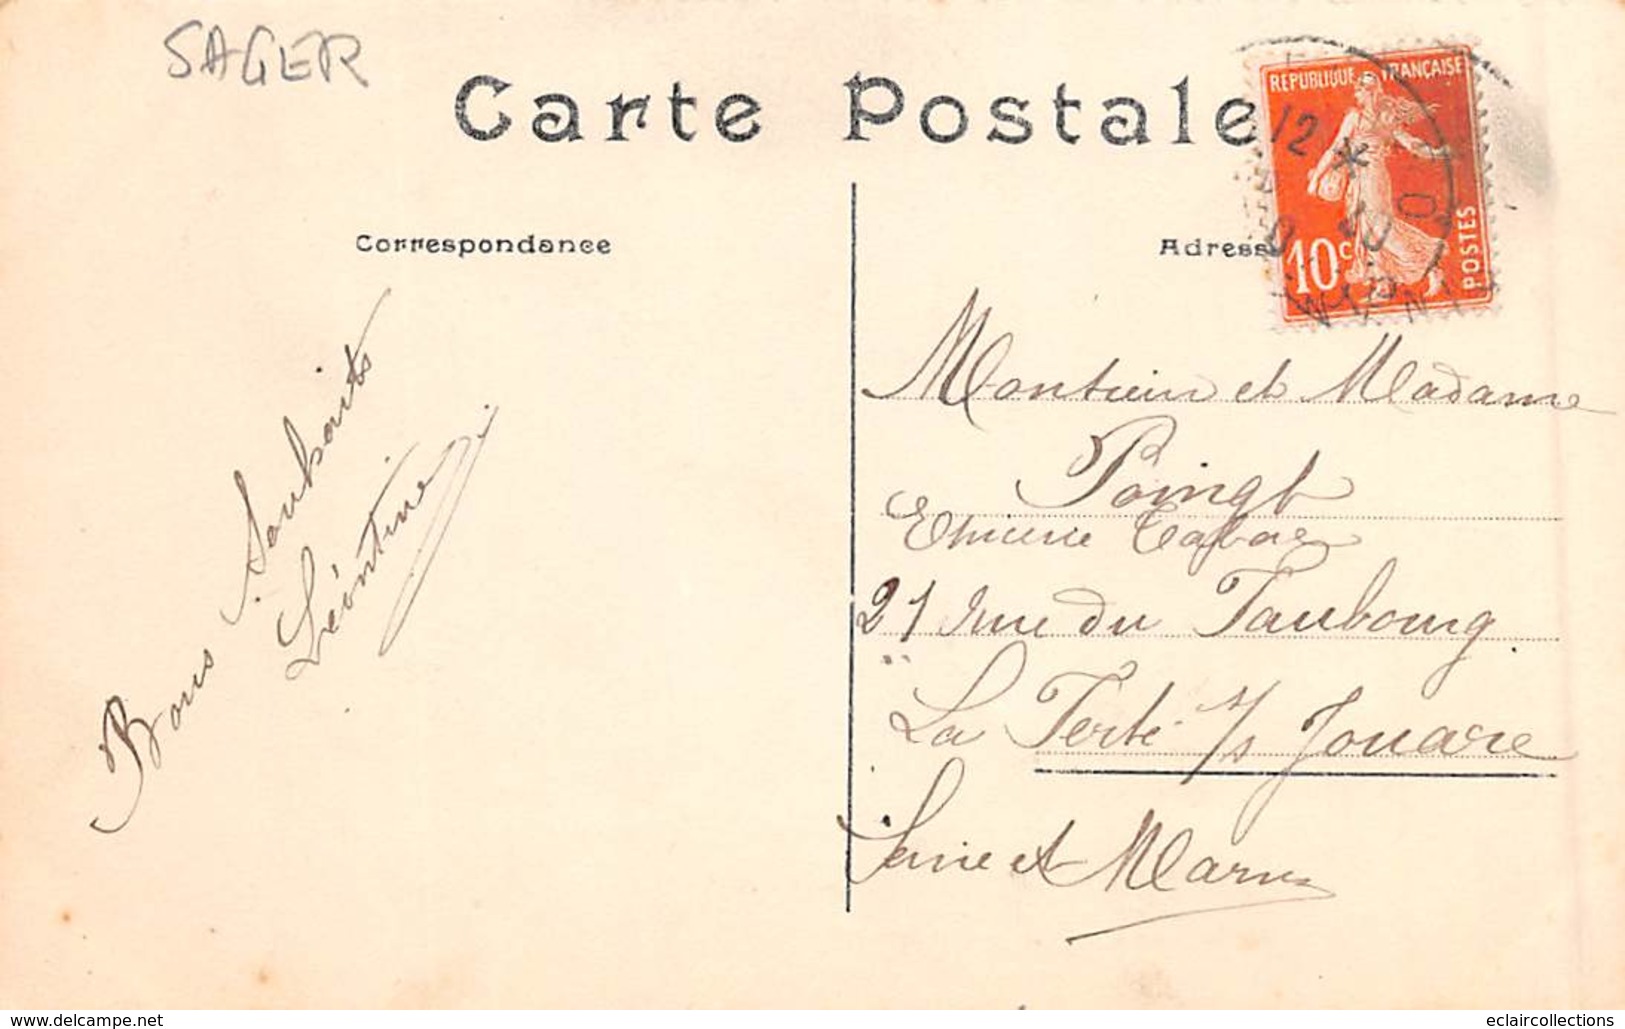 SAGER
Carte Postale
REPUBLIQUE FRANÇAISE
10c
POSTES
12
Correspondance
Adresse
Bons Souhaits
Léontine
Monsieur et Madame
Poingt
Epicerie Tabac
21 rue du Faubourg
La Ferté s/s Jouare
Seine et Marne
www.delcampe.net
eclaircollections